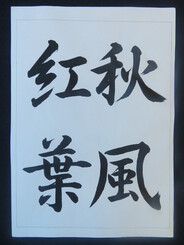 秋風
紅葉